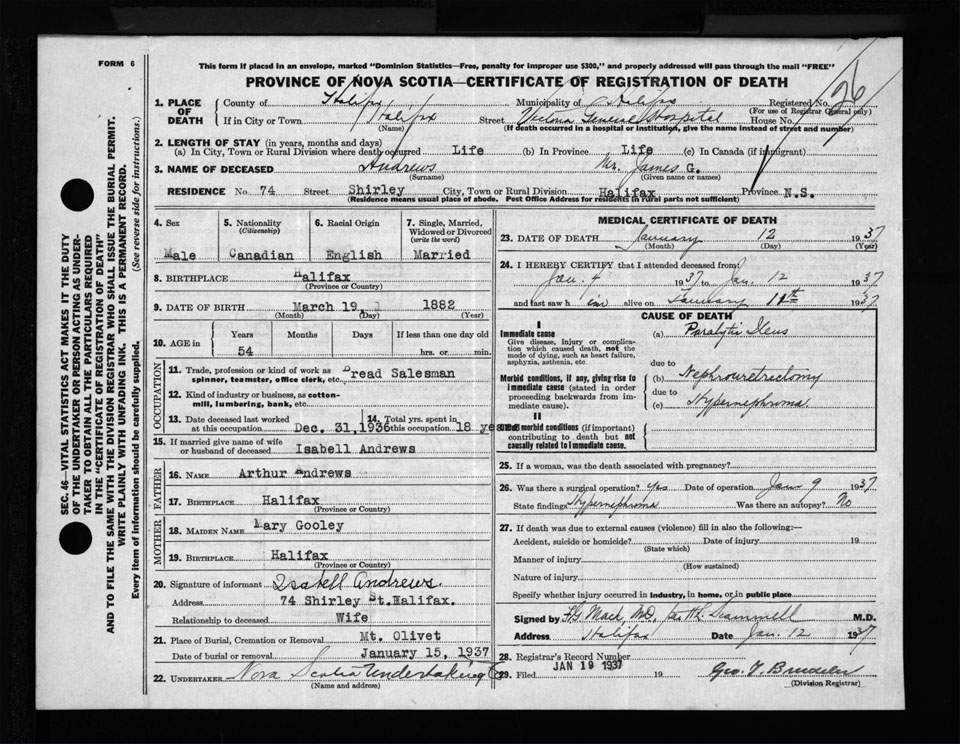 FORM 6
This form if placed in an envelope, marked "Dominion Statistics—Free, penalty for improper use $300," and properly addressed will pass through the mail "FREE"
PROVINCE OF NOVA SCOTIA—CERTIFICATE OF REGISTRATION OF DEATH
26
1. PLACE OF DEATH
County of Halifax Municipality of Halifax Registered No.
(For use of Registrar General only)
If in City or Town Halifax Street Victoria General Hospital House No.
(Name) (If death occurred in a hospital or institution, give the name instead of street and number)
2. LENGTH OF STAY (in years, months and days)
(a) In City, Town or Rural Division where death occurred Life (b) In Province Life (c) In Canada (if immigrant)
3. NAME OF DECEASED Andrews Mr. James G.
(Surname) (Given name or names)
RESIDENCE No. 74 Street Shirley City, Town or Rural Division Halifax Province N.S.
(Residence means usual place of abode. Post Office Address for residents in rural parts not sufficient)
4. Sex
Male
5. Nationality
(Citizenship)
Canadian
6. Racial Origin
English
7. Single, Married, Widowed or Divorced
(write the word)
Married
8. BIRTHPLACE Halifax
(Province or Country)
9. DATE OF BIRTH March 19 1882
(Month) (Day) (Year)
10. AGE in
Years Months Days If less than one day old
54 hrs. or min.
OCCUPATION
11. Trade, profession or kind of work as spinner, teamster, office clerk, etc. Bread Salesman
12. Kind of industry or business, as cotton-mill, lumbering, bank, etc.
13. Date deceased last worked at this occupation Dec. 31, 1936
14. Total yrs. spent in this occupation 18 years
15. If married give name of wife or husband of deceased Isabell Andrews
FATHER
16. NAME Arthur Andrews
17. BIRTHPLACE Halifax
(Province or Country)
MOTHER
18. MAIDEN NAME Mary Gooley
19. BIRTHPLACE Halifax
(Province or Country)
20. Signature of informant Isabell Andrews.
Address 74 Shirley St. Halifax.
Relationship to deceased Wife
21. Place of Burial, Cremation or Removal Mt. Olivet
Date of burial or removal January 15, 1937
22. UNDERTAKER Nova Scotia Undertaking Co
(Name and address)
MEDICAL CERTIFICATE OF DEATH
23. DATE OF DEATH January 12 1937
(Month) (Day) (Year)
24. I HEREBY CERTIFY that I attended deceased from:
Jan. 4 1937 to Jan. 12 1937
and last saw h im alive on January 11th 1937
CAUSE OF DEATH
I
Immediate cause
Give disease, injury or complication which caused death, not the mode of dying, such as heart failure, asphyxia, asthenia, etc.
(a) Paralytic Ileus
due to
Morbid conditions, if any, giving rise to immediate cause (stated in order proceeding backwards from immediate cause).
(b) Nephrouretrectomy
due to
(c) Hypernephroma
II
Other morbid conditions (if important) contributing to death but not causally related to immediate cause.
25. If a woman, was the death associated with pregnancy?
26. Was there a surgical operation? Yes Date of operation Jan 9 1937
State findings Hypernephroma Was there an autopsy? No
27. If death was due to external causes (violence) fill in also the following:—
Accident, suicide or homicide? Date of injury 19
(State which)
Manner of injury
(How sustained)
Nature of injury
Specify whether injury occurred in industry, in home, or in public place
Signed by F.G. Mack, MD, per H. Scammell M.D.
Address Halifax Date Jan. 12 1937
28. Registrar's Record Number
29. Filed JAN 19 1937 19
(Division Registrar)
SEC. 46—VITAL STATISTICS ACT MAKES IT THE DUTY
OF THE UNDERTAKER OR PERSON ACTING AS UNDER-
TAKER TO OBTAIN ALL THE PARTICULARS REQUIRED
IN THE "CERTIFICATE OF REGISTRATION OF DEATH"
AND TO FILE THE SAME WITH THE DIVISION REGISTRAR WHO SHALL ISSUE THE BURIAL PERMIT.
WRITE PLAINLY WITH UNFADING INK. THIS IS A PERMANENT RECORD.
Every item of information should be carefully supplied. (See reverse side for instructions.)